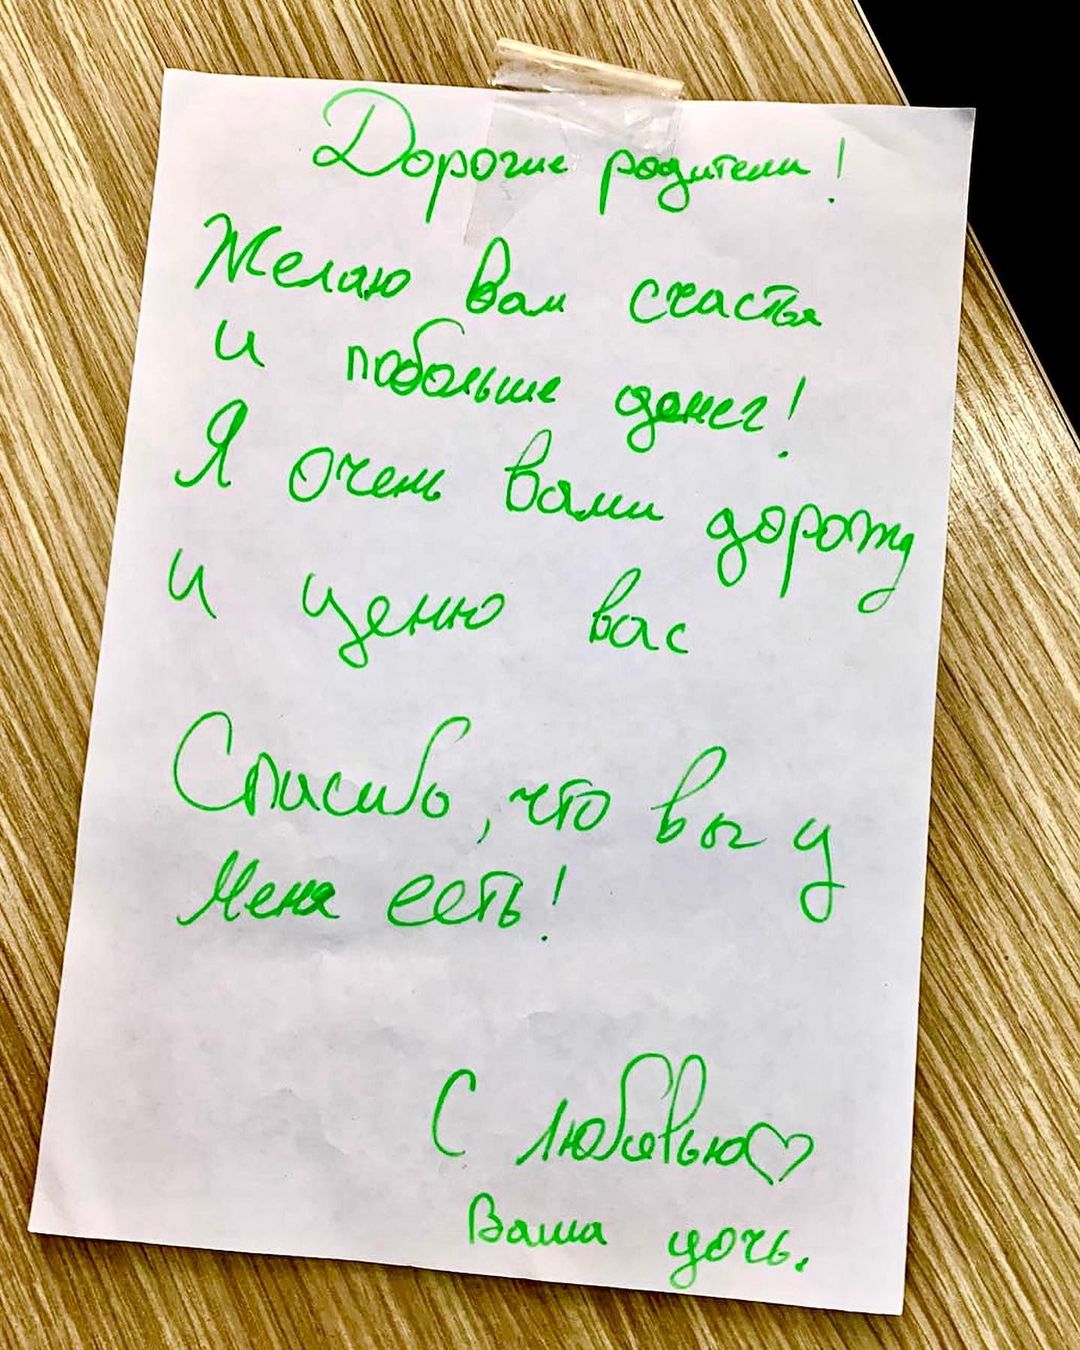 Дорогие родители!
Желаю вам счастья
и побольше денег!
Я очень вами дорожу
и ценю вас
Спасибо, что вы у
меня есть!
С любовью♡
Ваша дочь.